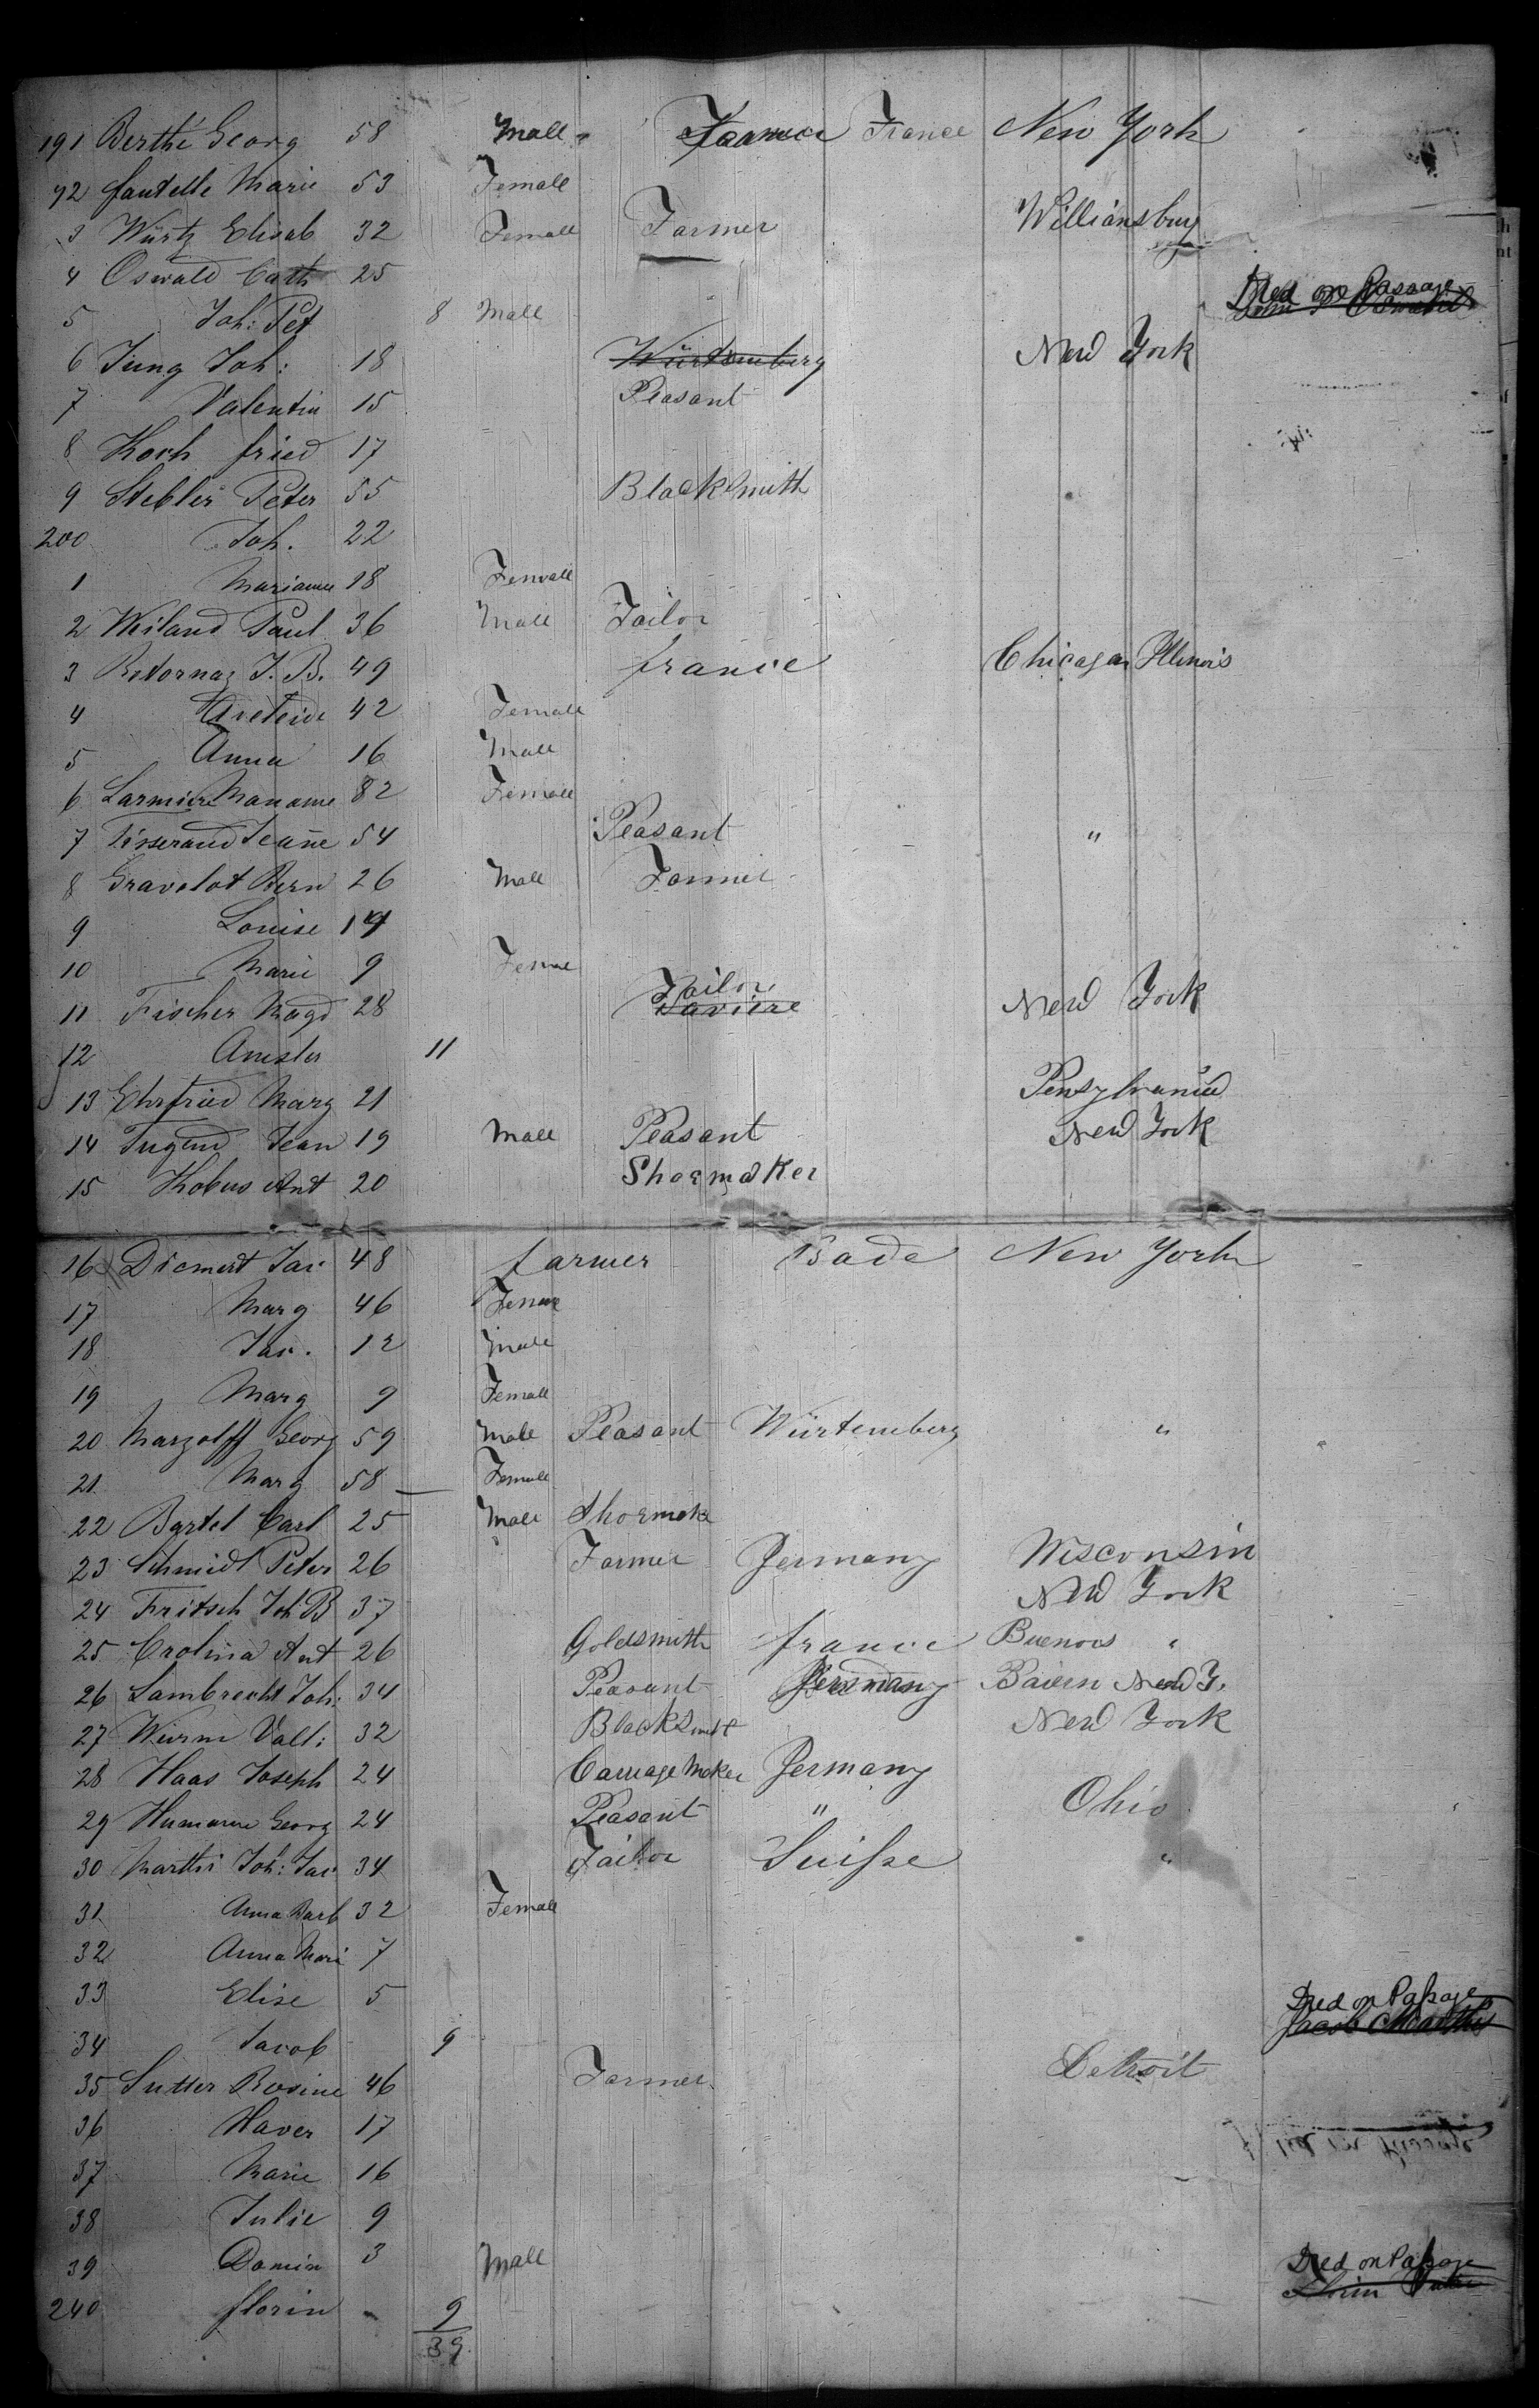 191 Berthé Georg 58 Male France New York
92 Marie 53 Female
3 Würtz Elisab 32 Female Farmer Williansburg
4 Oswald Cath 25
Died on Passage
5 Joh: Pet 8 Male
6 Jung Joh: 18 Würtemberg New York
7 Valentin 15 Peasant
8 Koch fried 17
9 Stebler Peter 55 BlackSmith
200 Joh. 22
1 Marianne 18 Female
2 Weiland Paul 36 Male Tailor
3 Retornaz J. B. 49 france Chicago Illinois
4 42 Female
5 Anna 16 Male
6 82 Female
7 Tisserand Jeanne 54 Peasant "
8 Gravelot Bern 26 Male Farmer
9 Louise 19
10 Marie 9 Female
Tailor
11 Fischer Magd 28 Bavière New York
12 11
13 Ehrfried Marg 21 Pensylvania
14 Jean 19 Male Peasant New York
15 Kobus Ant 20 Shoemaker
16 Diemert Jac 48 farmer Bade New York
17 Marg 46 Female
18 Jac. 12 Male
19 Marg 9 Female
20 Marzolff Georg 59 Male Peasant Würtemberg "
21 Marg 58 Female
22 Bartel Carl 25 Male Shoemake
23 Schmidt Peter 26 Farmer Germany Wisconsin
24 Fritsch Joh B 37 New York
25 Crolina Ant 26 Goldsmith france Buenos "
26 Lambrecht Joh: 34 Peasant Germany Baiern New Y.
27 Wurm Valt: 32 BlackSmith New York
28 Haas Joseph 24 Carriage Maker Germany
29 Humann Georg 24 Peasant " Ohio
30 Marthi Joh: Jac 34 Tailor Suisse "
31 Anna Barb 32 Female
32 Anna Mari 7
33 Elise 5
Died on Passage
34 Jacob 9 Jacob Marthi
35 Sutter Rosine 46 Farmer Detroit
36 Xaver 17
37 Marie 16
38 Julie 9
39 Damin 3 Male
Died on Passage
240 florin 9
39